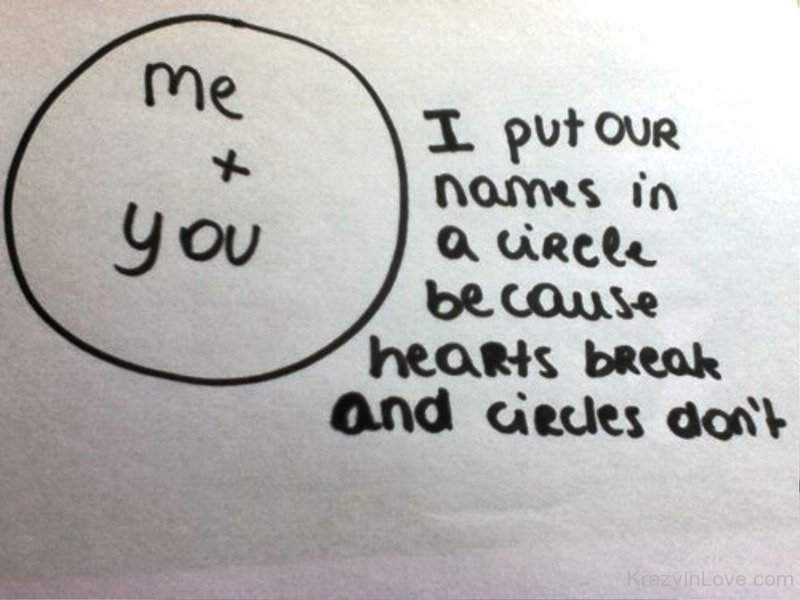 me
+
you
I put OUR
names in
a ciRcle
because
heaRts bReak
and ciRcles don't
KrazyInLove.com